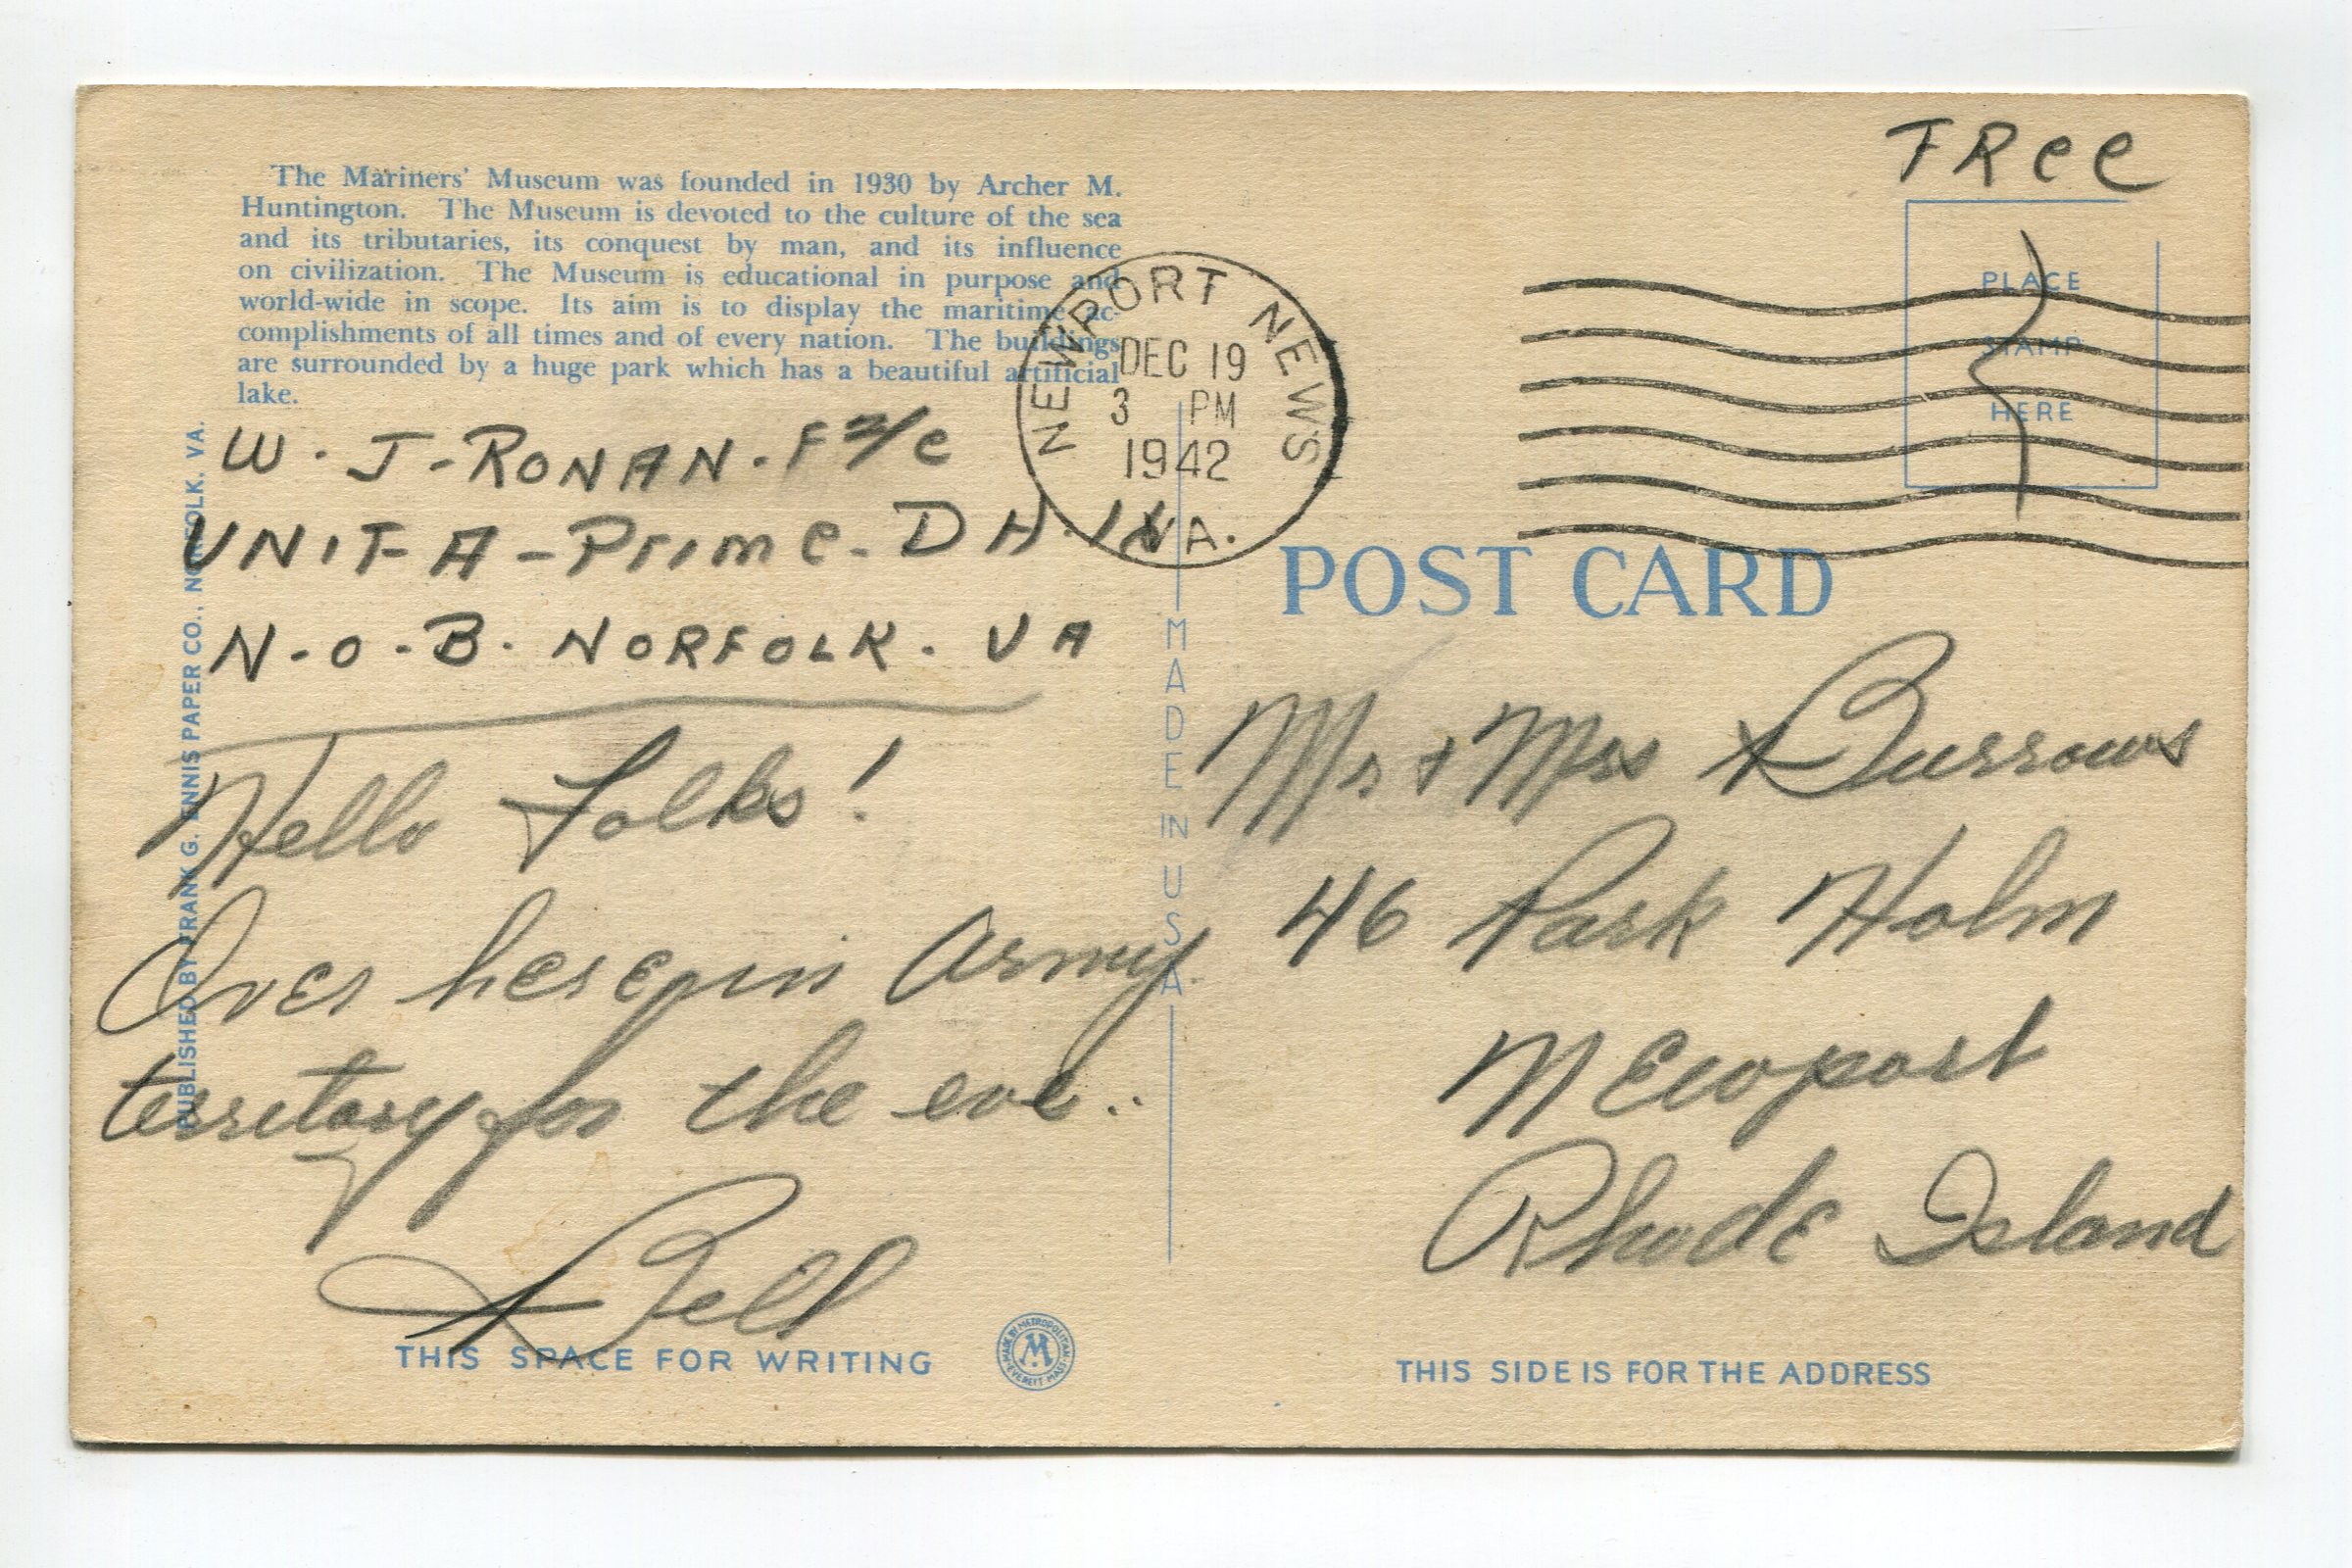 The Mariners' Museum was founded in 1930 by Archer M.
Huntington. The Museum is devoted to the culture of the sea
and its tributaries, its conquest by man, and its influence
on civilization. The Museum is educational in purpose and
world-wide in scope. Its aim is to display the maritime ac-
complishments of all times and of every nation. The buildings
are surrounded by a huge park which has a beautiful artificial
lake.
W. J-RONAN. F 2/c
UNIT-A-Prime-DH.
N-O-B. NORFOLK. VA
Hello Folks!
Over here in Army
territory for the eve..
Bill
THIS SPACE FOR WRITING
MADE BY METROPOLITAN
M
EVERETT MASS
PUBLISHED BY FRANK G. ENNIS PAPER CO., NORFOLK, VA.
NEWPORT NEWS
DEC 19
3 PM
1942
VA.
MADE IN U S A.
FRee
PLACE
STAMP
HERE
POST CARD
Mr + Mrs Burrows
46 Park Holm
Newport
Rhode Island
THIS SIDE IS FOR THE ADDRESS